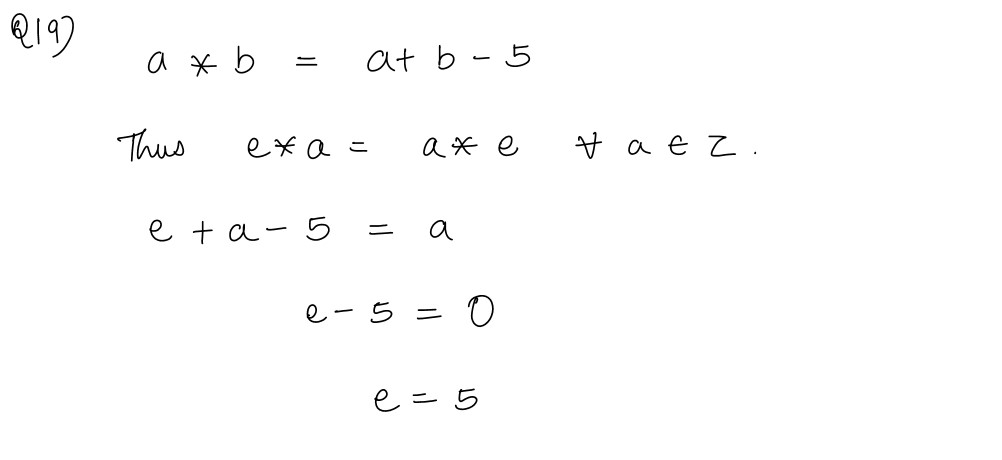 Q19)
a * b = a + b - 5
Thus e * a = a * e ∀ a ∈ Z.
e + a - 5 = a
e - 5 = 0
e = 5